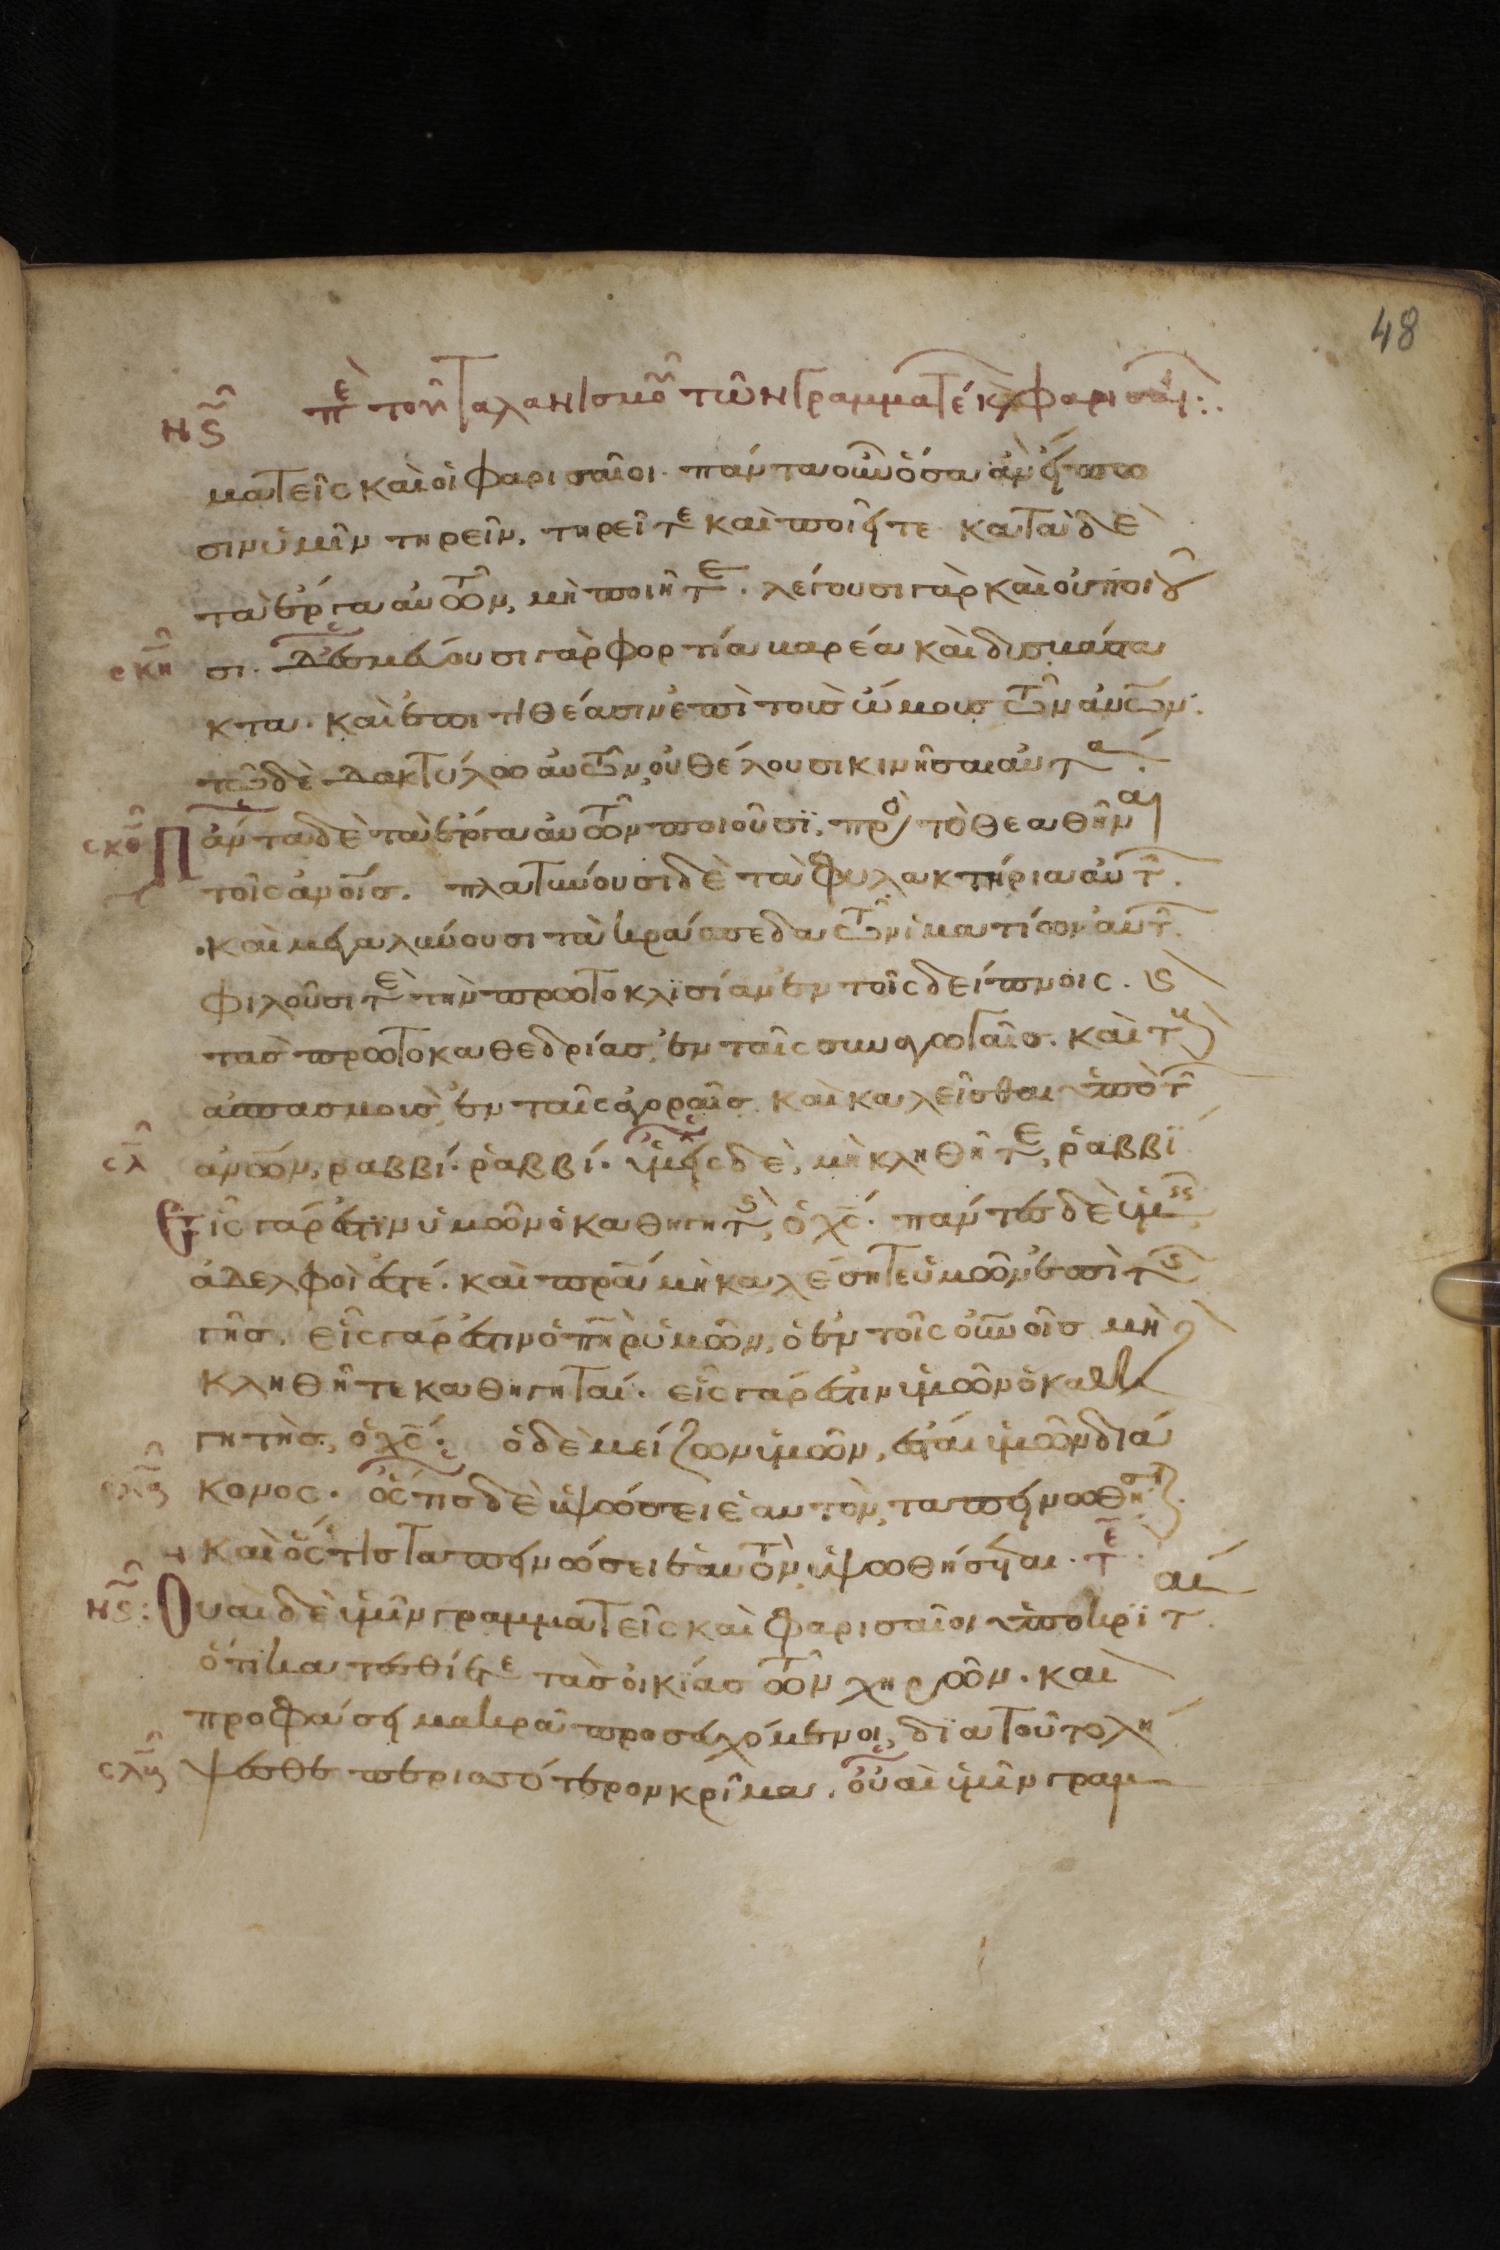 48
νϛ πε τοῦ ταλανισμοῦ τῶν γραμματέ κ φαρισαί:·
ματεῖς καὶ οἱ φαρισαῖοι· πάντα οὖν ὅσα ἂν εἴπω
σιν ὑμῖν τηρεῖν, τηρεῖτε καὶ ποιῆτε κατὰ δὲ
τὰ ἔργα αὐτῶν, μὴ ποιῆτε. λέγουσι γὰρ καὶ οὐ ποιοῦ
σκη σι. δεσμεύουσι γὰρ φορτία βαρέα καὶ δυσβάστα
κτα. καὶ ἐπιτιθέασιν ἐπὶ τοὺς ὤμους τῶν ἀνων·
τῶ δὲ δακτύλω αὐτῶν, οὐ θέλουσι κινῆσαι αὐτά.
σκθ Πάντα δὲ τὰ ἔργα αὐτῶν ποιοῦσϊ, πρὸς τὸ θεαθῆναι
τοῖς ἀνοις. πλατύνουσι δὲ τὰ φυλακτήρια αὐτ.
καὶ μεγαλύνουσι τὰ κράσπεδα τῶν ἱματίων αὐτ.
φιλοῦσι τε τὴν πρωτοκλϊσίαν ἐν τοῖς δείπνοις. ϗ
τὰς πρωτοκαθεδρίας, ἐν ταῖς συναγωγαῖς. καὶ τοὺς
ἀσπασμοὺς, ἐν ταῖς ἀγοραῖς. καὶ καλεῖσθαι ὑπὸ τ
σλ ἀνων, ραββί· ῥαββί· ὑμεῖς δὲ, μὴ κληθῆτε, ῥαββΐ
Εἷς γάρ ἐστϊν ὑμῶν ὁ καθηγητὴς, ὁ χς. πάντες δὲ ὑμεῖς
ἀδελφοί ἐστέ. καὶ πρα μὴ καλέσητε ὑμῶν ἐπὶ τῆς
γῆς. εἷς γάρ ἐστιν ὁ πηρ ὑμῶν, ὁ ἐν τοῖς οὐνοις μὴ δὲ
κληθῆτε καθηγηταί. εἷς γάρ ἐστιν ὑμῶν ὁ καθη
γητὴς, ὁ χς. ὁ δὲ μείζων ὑμῶν, ἔσται ὑμῶν διά
κονος. ὅστις δὲ ὑψώσει ἑαυτὸν, ταπεινωθήσεται.
καὶ ὅστις ταπεινώσει ἑαυτὸν, ὑψωθήσεται. τε
νϛ: Οὐαὶ δὲ ὑμῖν γραμματεῖς καὶ φαρισαῖοι ὑποκρϊταί.
ὅτι κατεσθίετε τὰς οἰκΐας τῶν χηρῶν. καὶ
προφάσει μακρᾶ προσευχόμενοι, δϊα τοῦτο λή
ψεσθε περισσότερον κρῖμα. οὐαὶ ὑμῖν γραμ